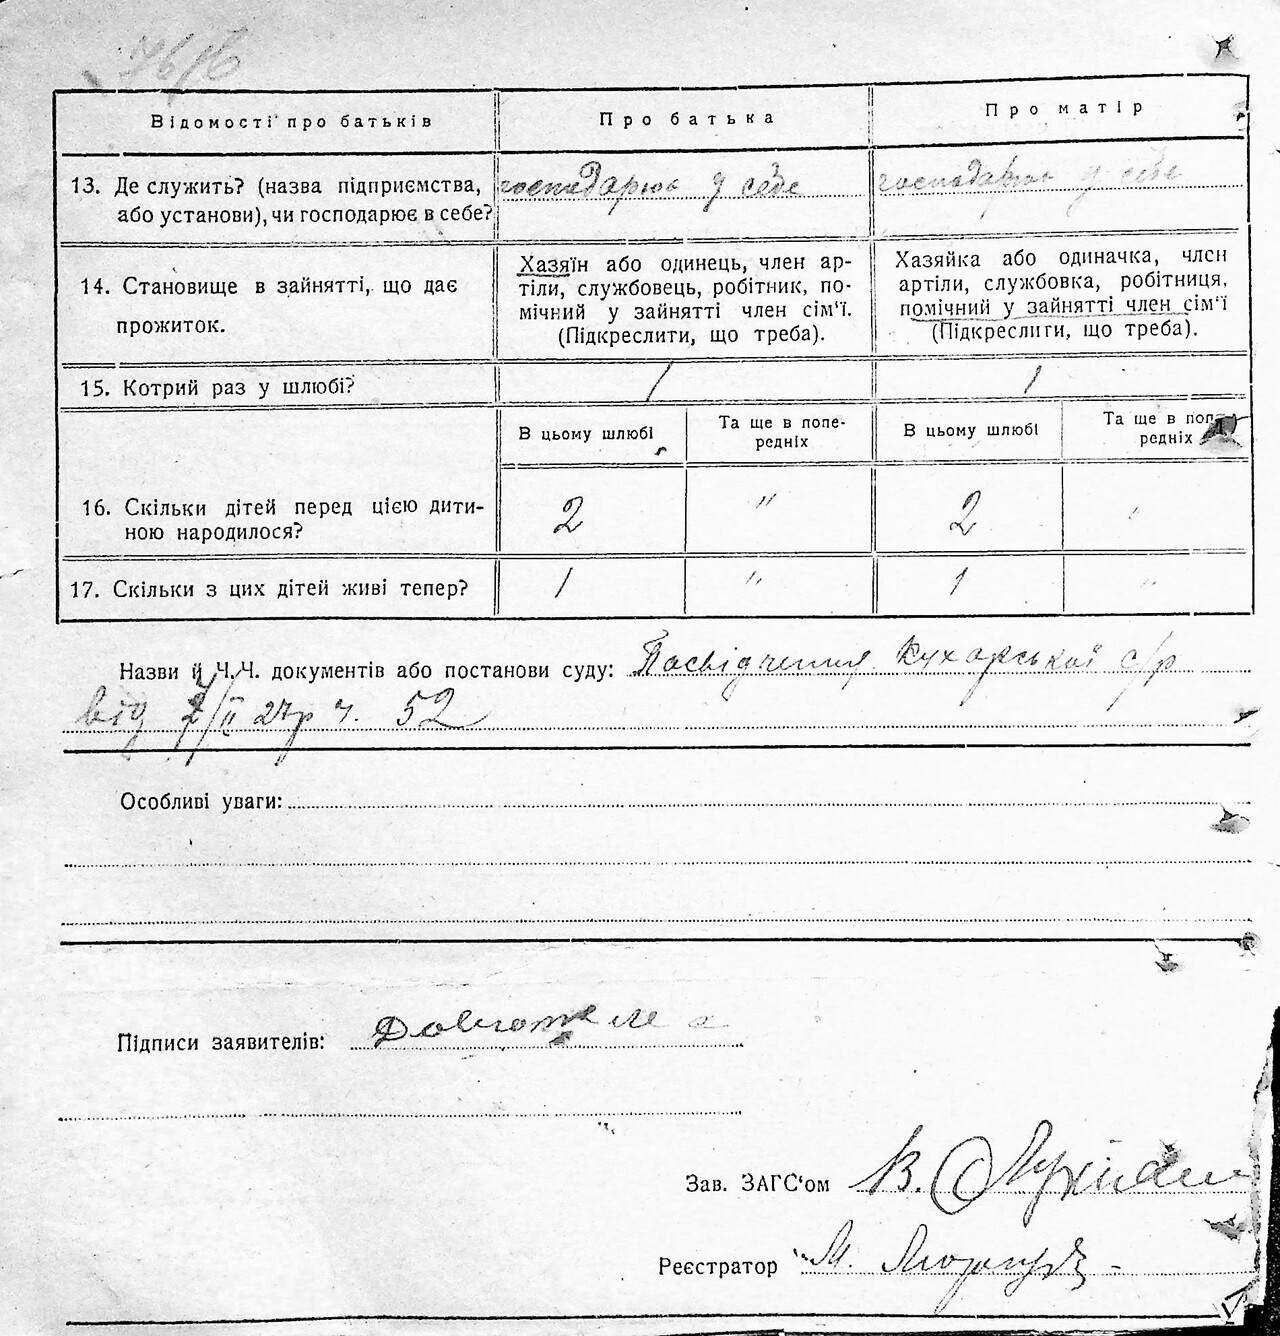 76/6
Відомості про батьків
Про батька
Про матір
13. Де служить? (назва підприємства,
або установи), чи господарює в себе?
господарює у себе
господарює у себе
14. Становище в зайнятті, що дає
прожиток.
Хазяїн або одинець, член ар-
тілі, службовець, робітник, по-
мічний у зайнятті член сім'ї.
(Підкреслити, що треба).
Хазяйка або одиначка, член
артіли, службовка, робітниця,
помічний у зайнятті член сім'ї
(Підкреслити, що треба).
15. Котрий раз у шлюбі?
1
1
В цьому шлюбі
Та ще в попе-
редніх
В цьому шлюбі
Та ще в попе-
редніх
16. Скільки дітей перед цією дити-
ною народилося?
2
"
2
"
17. Скільки з цих дітей живі тепер?
1
"
1
"
Назви й Ч.Ч. документів або постанови суду: Посвідчення Кухарської с/р
від 7/II 27р ч. 52
Особливі уваги:
Підписи заявителів:
Зав. ЗАГС'ом В.
Реєстратор М.